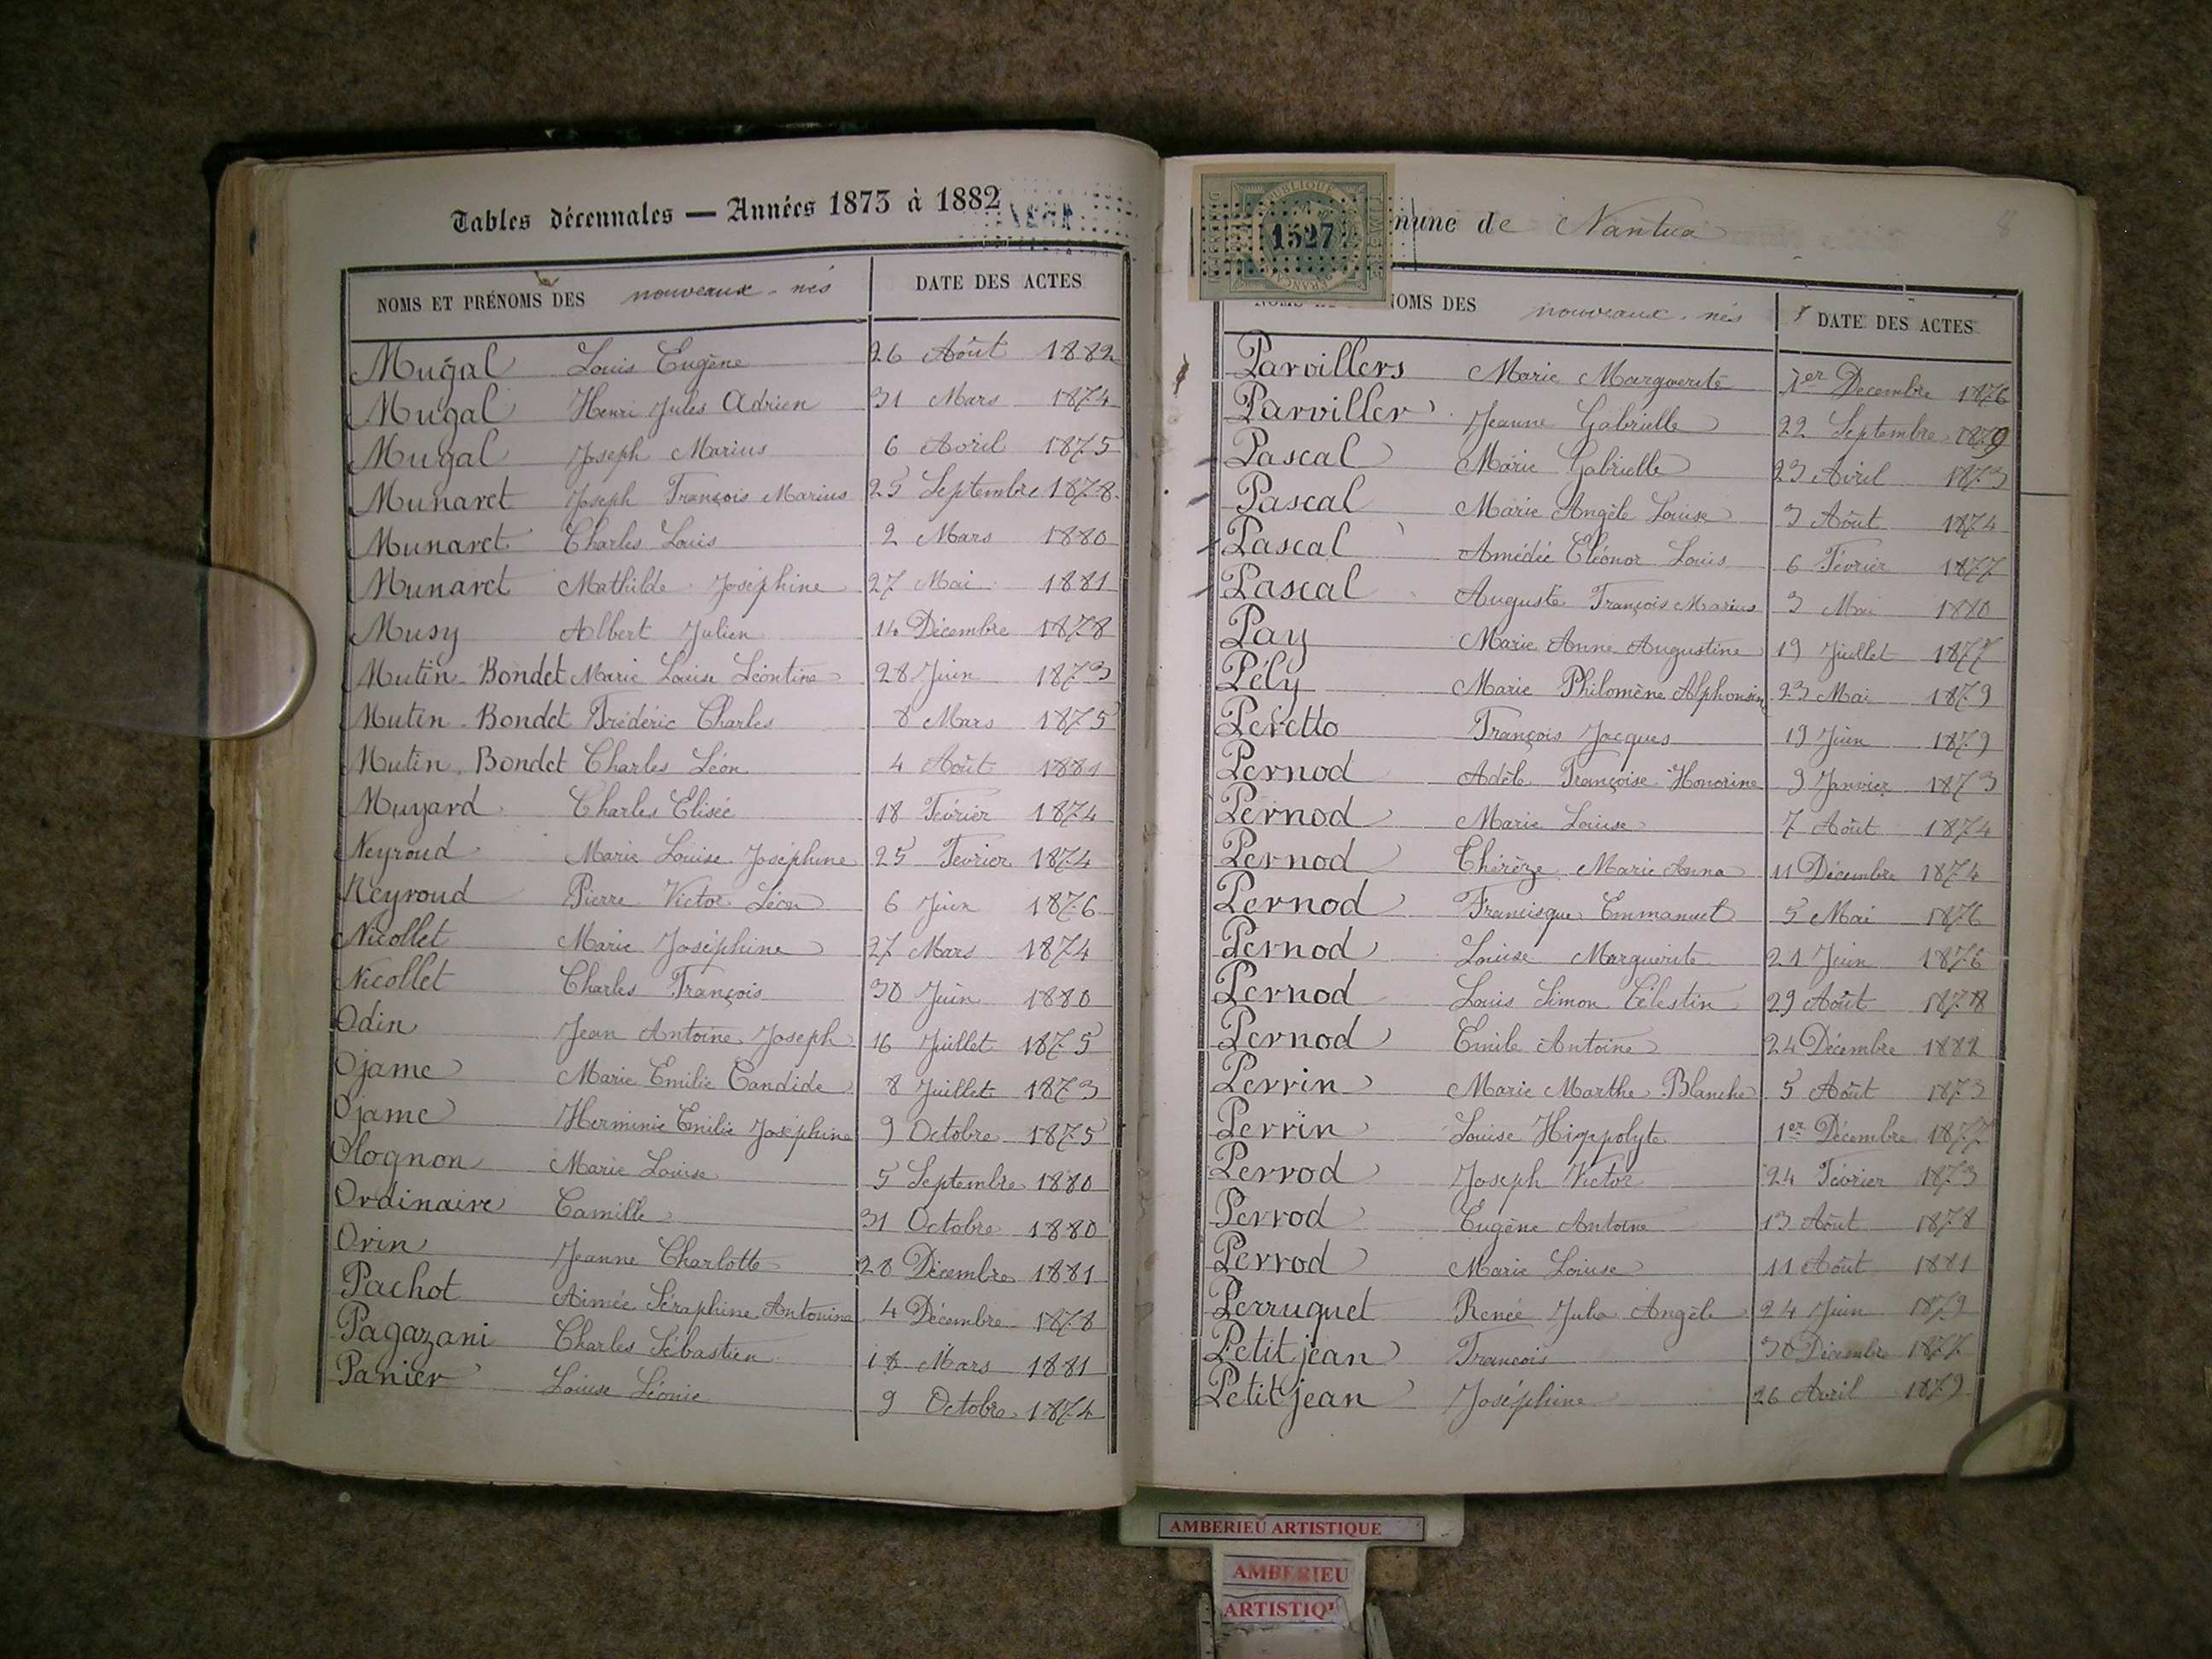 Tables décennales — Années 1873 à 1882
NOMS ET PRÉNOMS DES nouveaux-nés DATE DES ACTES
Mugal Louis Eugène 26 Août 1882
Mugal Henri Jules Adrien 31 Mars 1874
Mugal Joseph Marius 6 Avril 1875
Munaret Joseph François Marius 25 Septembre 1878
Munaret Charles Louis 2 Mars 1880
Munaret Mathilde Joséphine 27 Mai 1881
Musy Albert Julien 14 Décembre 1878
Mutin-Bondet Marie Louise Léontine 28 Juin 1873
Mutin-Bondet Frédéric Charles 8 Mars 1875
Mutin-Bondet Charles Léon 4 Août 1881
Muyard Charles Elisée 18 Février 1874
Neyroud Marie Louise Joséphine 25 Février 1874
Neyroud Pierre Victor Léon 6 Juin 1876
Nicollet Marie Joséphine 27 Mars 1874
Nicollet Charles François 30 Juin 1880
Odin Jean Antoine Joseph 16 Juillet 1875
Ojame Marie Emilie Candide 8 Juillet 1873
Ojame Herminie Emilie Joséphine 9 Octobre 1875
Olognon Marie Louise 5 Septembre 1880
Ordinaire Camille 31 Octobre 1880
Orin Jeanne Charlotte 28 Décembre 1881
Pachot Aimée Séraphine Antonine 4 Décembre 1878
Pagazani Charles Sébastien 18 Mars 1881
Panier Louise Léonie 9 Octobre 1874
1527
mune de Nantua
NOMS DES nouveaux-nés DATE DES ACTES
Parvillers Marie Marguerite 1er Décembre 1876
Parviller Jeanne Gabrielle 22 Septembre 1879
Pascal Marie Gabrielle 23 Avril 1873
Pascal Marie Angèle Louise 3 Août 1874
Pascal Amédée Eléonor Louis 6 Février 1877
Pascal Auguste François Marius 3 Mai 1880
Pay Marie Anne Augustine 19 Juillet 1877
Pély Marie Philomène Alphonsin 23 Mai 1879
Peretto François Jacques 19 Juin 1879
Pernod Adèle Françoise Honorine 9 Janvier 1873
Pernod Marie Louise 7 Août 1874
Pernod Thérèze Marie Anna 11 Décembre 1874
Pernod Francisque Emmanuel 5 Mai 1876
Pernod Louise Marguerite 21 Juin 1876
Pernod Louis Simon Célestin 29 Août 1878
Pernod Emile Antoine 24 Décembre 1882
Perrin Marie Marthe Blanche 5 Août 1873
Perrin Louise Hippolyte 1er Décembre 1877
Perrod Joseph Victor 24 Février 1873
Perrod Eugène Antoine 13 Août 1878
Perrod Marie Louise 11 Août 1881
Perruquet Renée Julia Angèle 24 Juin 1879
Petitjean François 30 Décembre 1877
Petitjean Joséphine 26 Avril 1879
AMBERIEU ARTISTIQUE
AMBERIEU
ARTISTIQU